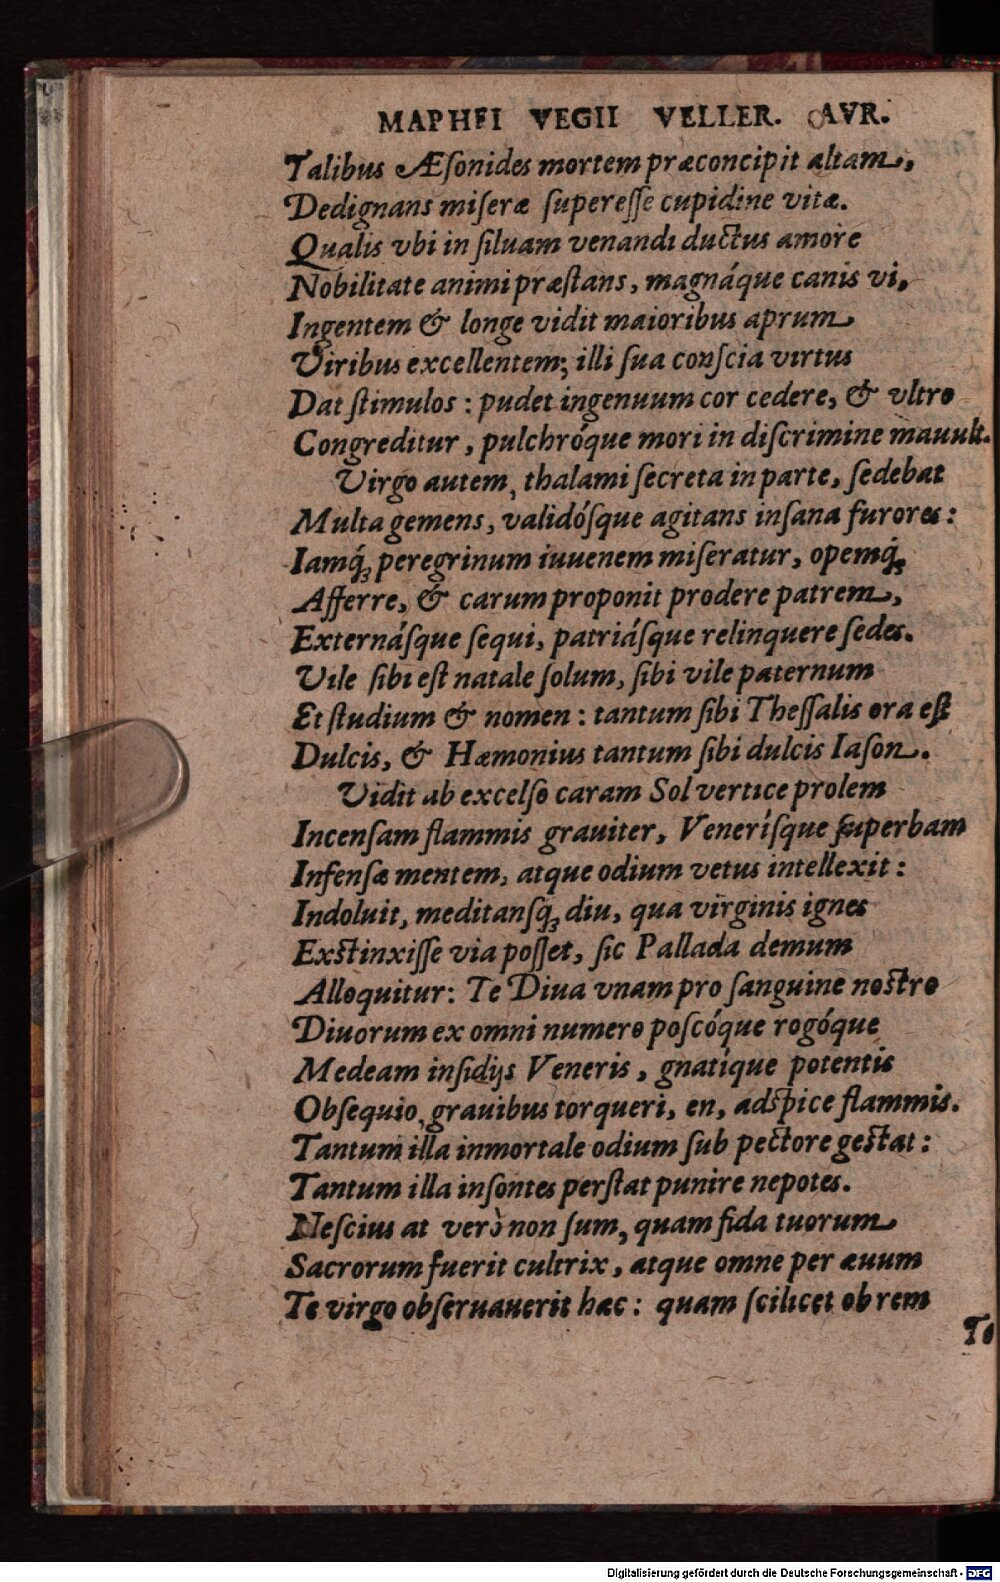 MAPHEI VEGII VELLER. AVR.
Talibus Æſonides mortem præconcipit altam,
Dedignans miſeræ ſupereſſe cupidine vitæ.
Qualis vbi in ſiluam venandi ductus amore
Nobilitate animi præſtans, magnáque canis vi,
Ingentem & longe vidit maioribus aprum
Viribus excellentem; illi ſua conſcia virtus
Dat ſtimulos: pudet ingenuum cor cedere, & vltro
Congreditur, pulchróque mori in diſcrimine mauult.
Virgo autem, thalami ſecreta in parte, ſedebat
Multa gemens, validóſque agitans inſana furores:
Iamq́ꝫ peregrinum iuuenem miſeratur, opemq́ꝫ
Afferre, & carum proponit prodere patrem,
Externáſque ſequi, patriáſque relinquere ſedes.
Vile ſibi eſt natale ſolum, ſibi vile paternum
Et ſtudium & nomen: tantum ſibi Theſſalis ora eſt
Dulcis, & Hæmonius tantum ſibi dulcis Iaſon.
Vidit ab excelſo caram Sol vertice prolem
Incenſam flammis grauiter, Veneríſque ſuperbam
Infenſæ mentem, atque odium vetus intellexit:
Indoluit, meditanſqꝫ diu, qua virginis ignes
Exſtinxiſſe via poſſet, ſic Pallada demum
Alloquitur: Te Diua vnam pro ſanguine noſtro
Diuorum ex omni numero poſcóque rogóque
Medeam inſidijs Veneris, gnatíque potentis
Obſequio, grauibus torqueri, en, adſpice flammis.
Tantum illa inmortale odium ſub pectore geſtat:
Tantum illa inſontes perſtat punire nepotes.
Neſcius at verò non ſum, quam fida tuorum
Sacrorum fuerit cultrix, atque omne per æuum
Te virgo obſeruauerit hæc: quam ſcilicet ob rem
Te
Digitalisierung gefördert durch die Deutsche Forschungsgemeinschaft - DFG